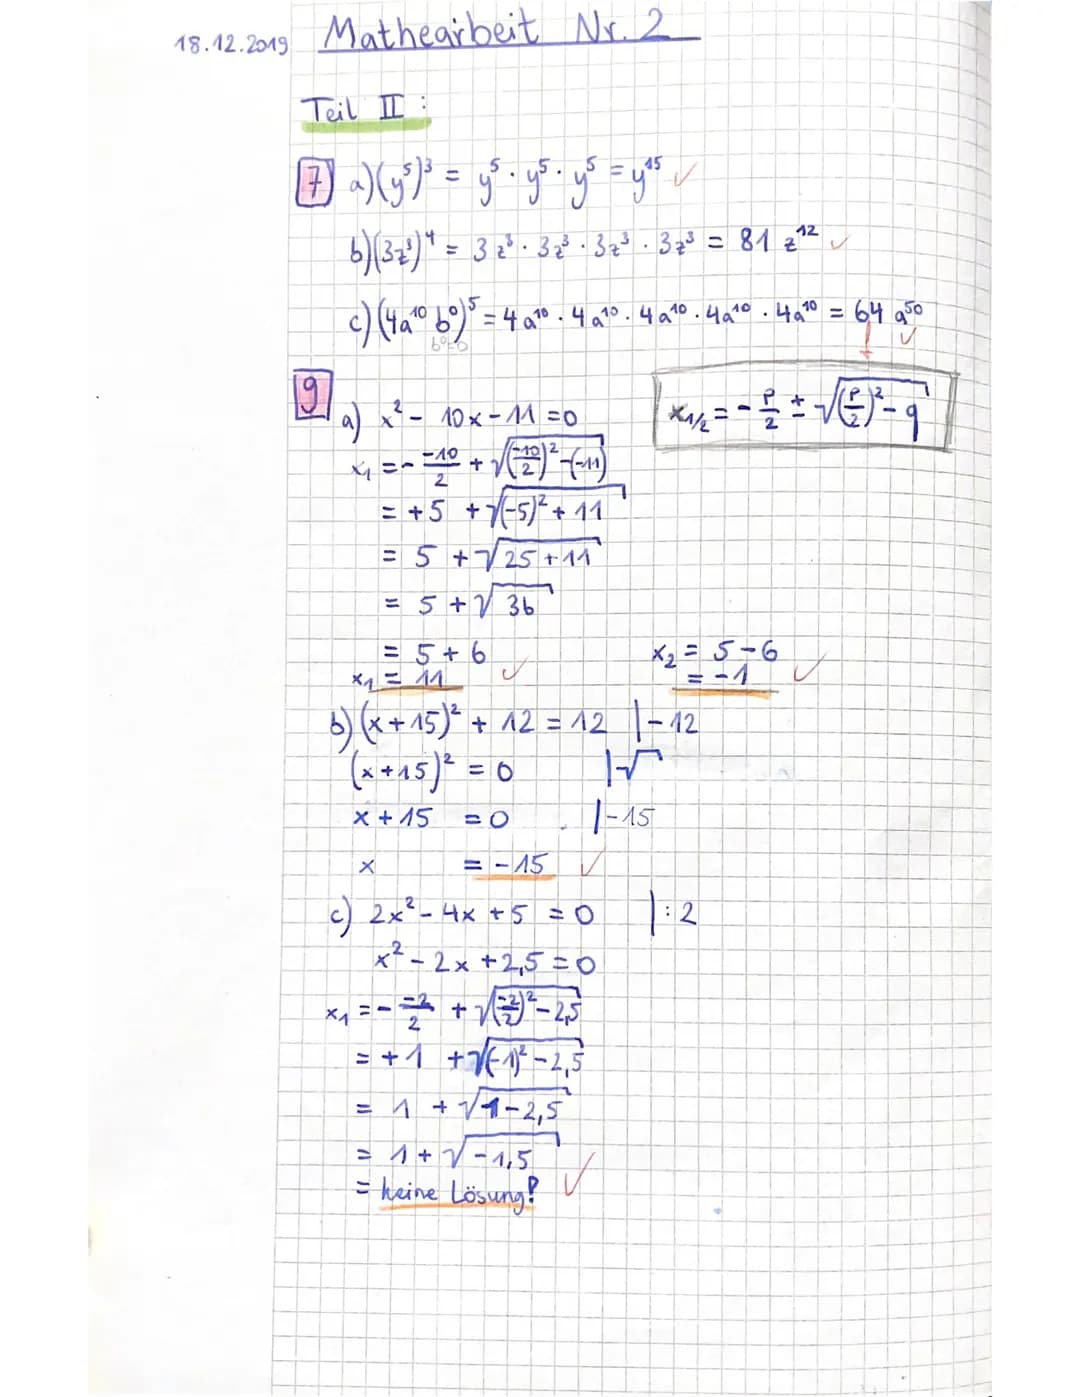 18.12.2019 Mathearbeit Nr. 2
Teil II :
7 a) (y⁵)³ = y⁵ · y⁵ · y⁵ = y¹⁵ ✓
b) (3z³)⁴ = 3z³ · 3z³ · 3z³ · 3z³ = 81 z¹² ✓
c) (4a¹⁰ b⁰)⁵ = 4a¹⁰ · 4a¹⁰ · 4a¹⁰ · 4a¹⁰ · 4a¹⁰ = 64 a⁵⁰
b⁰=0 ✓
9
x₁/₂ = - p/2 ± √((p/2)² - q)
a) x² - 10x - 11 = 0
x₁ = - -10/2 + √((-10/2)² - (-11))
= +5 + √((-5)² + 11)
= 5 + √(25 + 11)
= 5 + √36
= 5 + 6 ✓ x₂ = 5 - 6
x₁ = 11 = -1 ✓
b) (x + 15)² + 12 = 12 | - 12
(x + 15)² = 0 | √
x + 15 = 0 | - 15
x = - 15 ✓
c) 2x² - 4x + 5 = 0 | : 2
x² - 2x + 2,5 = 0
x₁ = - -2/2 + √((-2/2)² - 2,5)
= + 1 + √((-1)² - 2,5)
= 1 + √(1 - 2,5)
= 1 + √(-1,5)
= keine Lösung! ✓